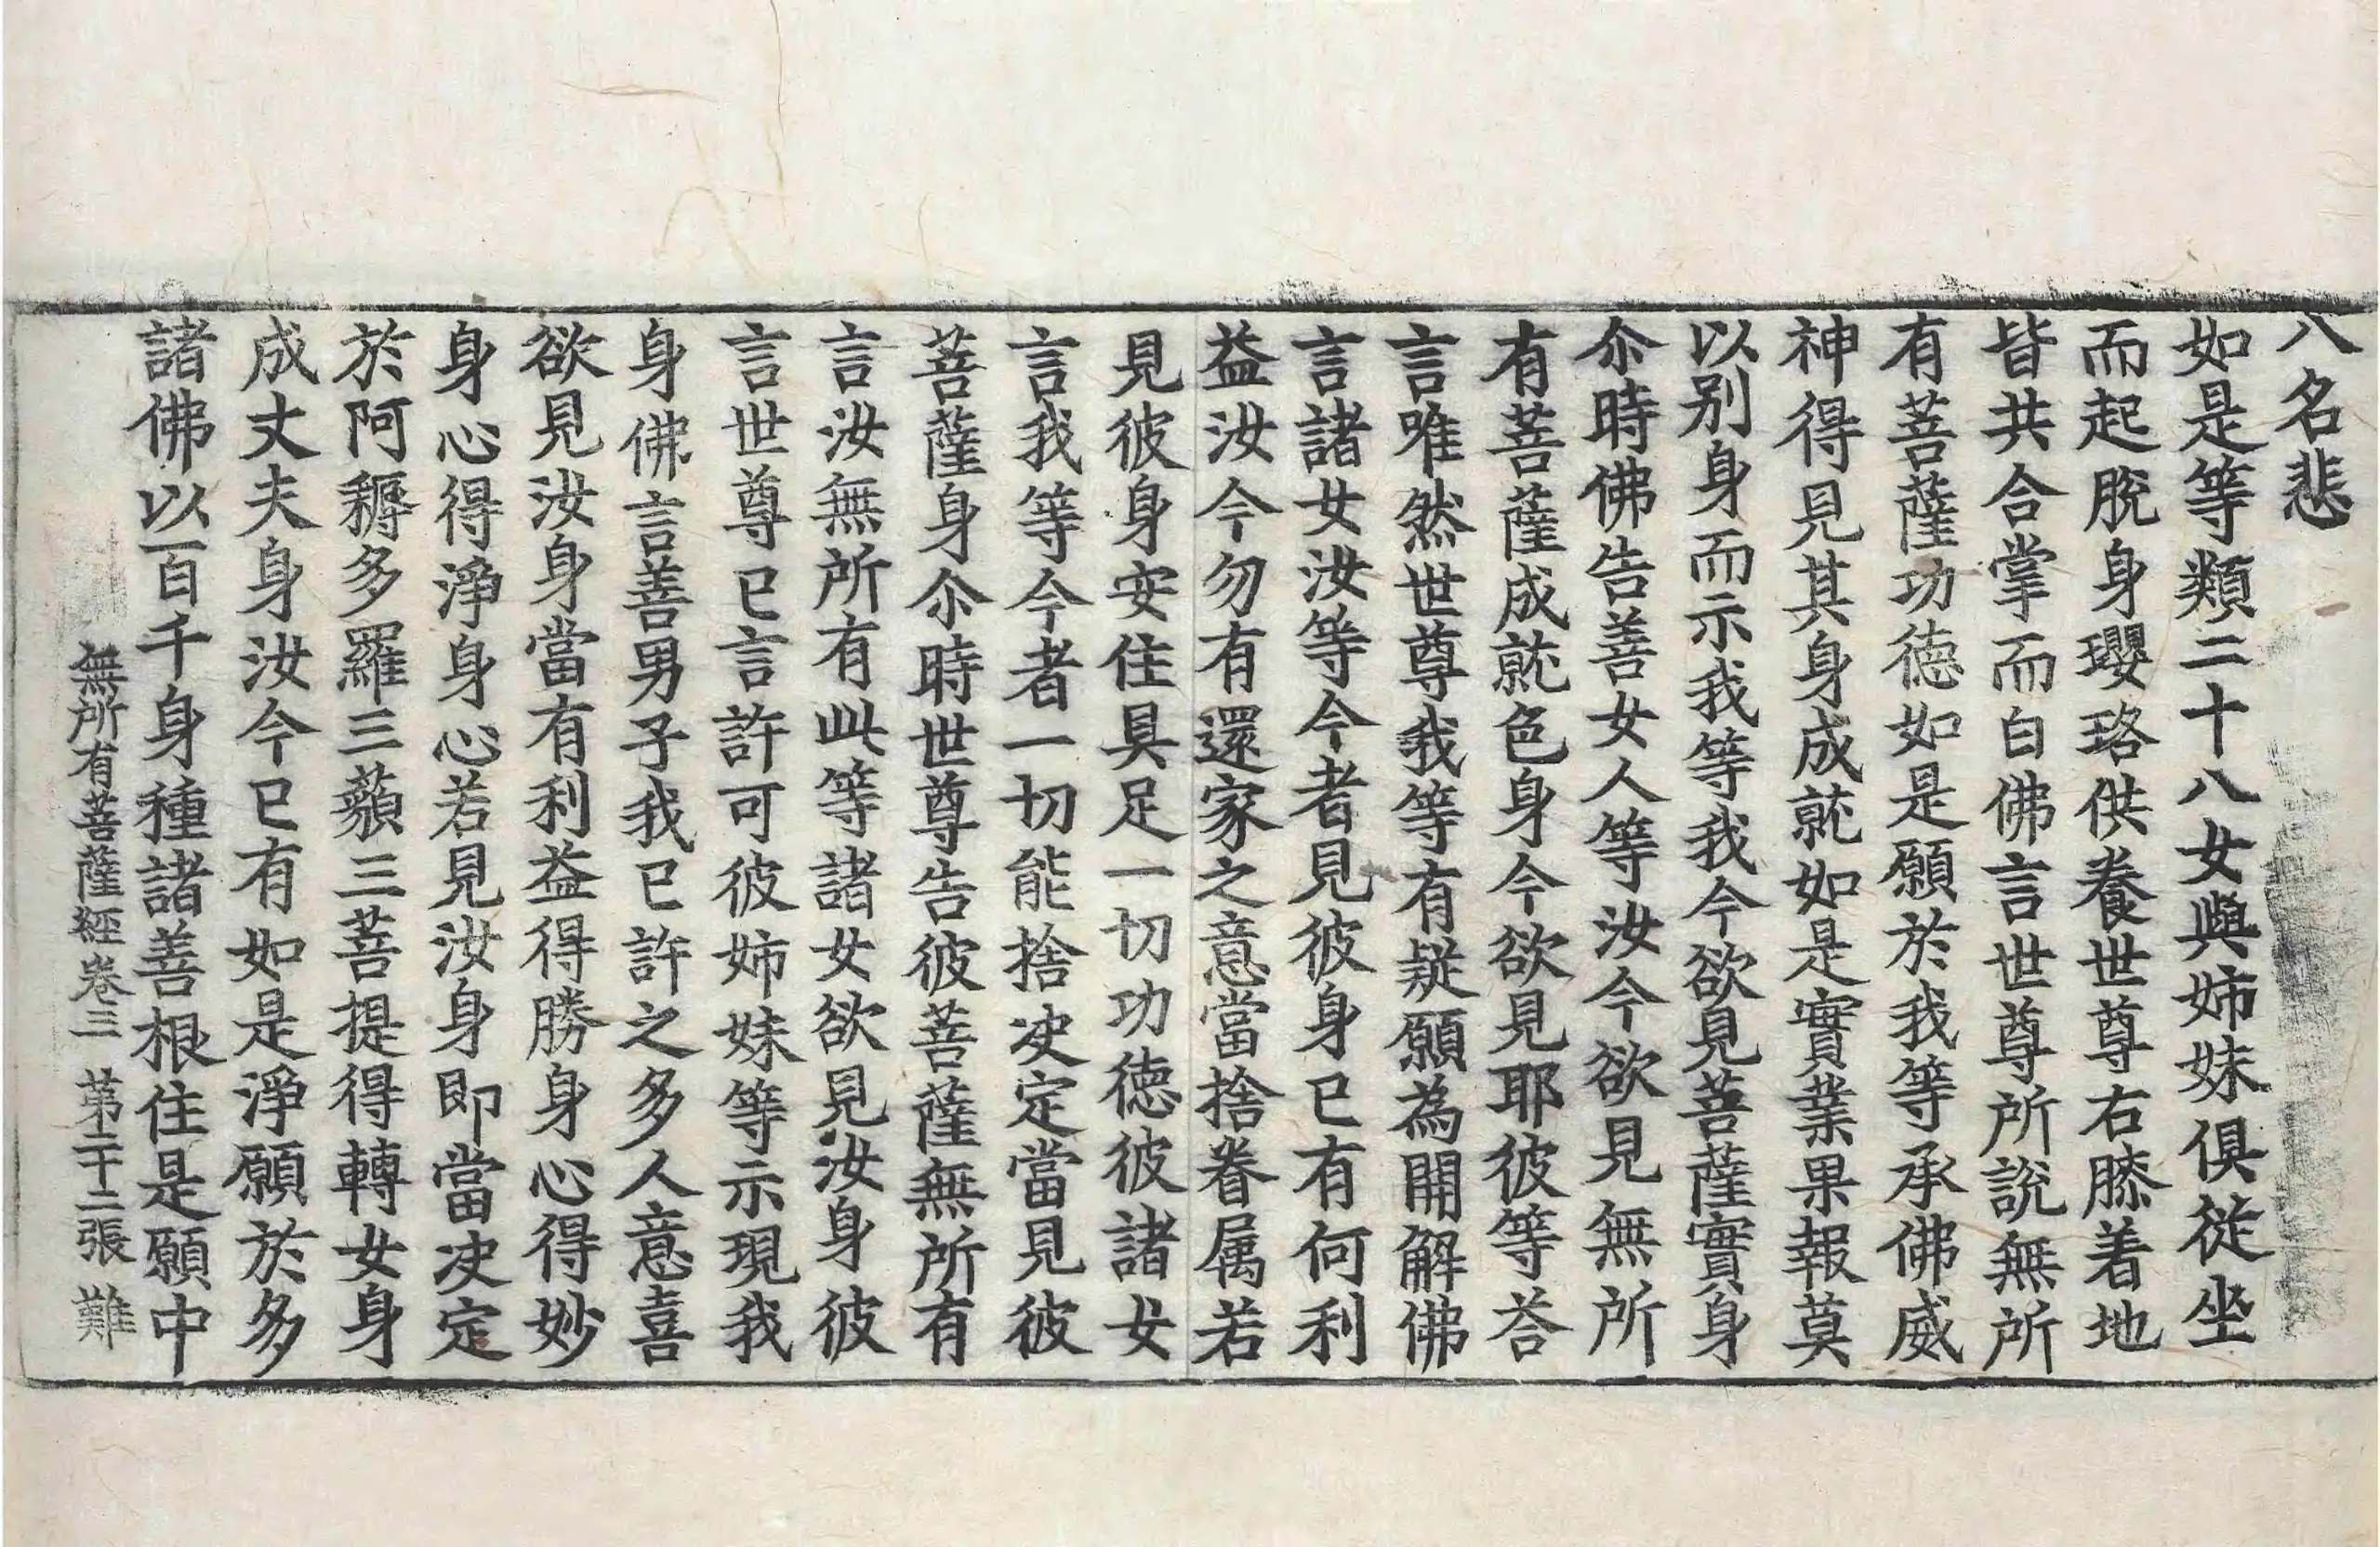 八名悲
如是等類二十八女與姉妹俱從坐
而起脫身瓔珞供養世尊右膝着地
皆共合掌而白佛言世尊所說無所
有菩薩功德如是願於我等承佛威
神得見其身成就如是實業果報莫
以别身而示我等我今欲見菩薩實身
尒時佛告善女人等汝今欲見無所
有菩薩成就色身今欲見耶彼等荅
言唯然世尊我等有疑願為開解佛
言諸女汝等今者見彼身已有何利
益汝今勿有還家之意當捨眷属若
見彼身安住具足一切功德彼諸女
言我等今者一切能捨决定當見彼
菩薩身尒時世尊告彼菩薩無所有
言汝無所有此等諸女欲見汝身彼
言世尊已言許可彼姉妹等示現我
身佛言善男子我已許之多人意喜
欲見汝身當有利益得勝身心得妙
身心得淨身心若見汝身即當决定
於阿耨多羅三藐三菩提得轉女身
成丈夫身汝今已有如是淨願於多
諸佛以百千身種諸善根住是願中
無所有菩薩經卷三 第二十二張 難